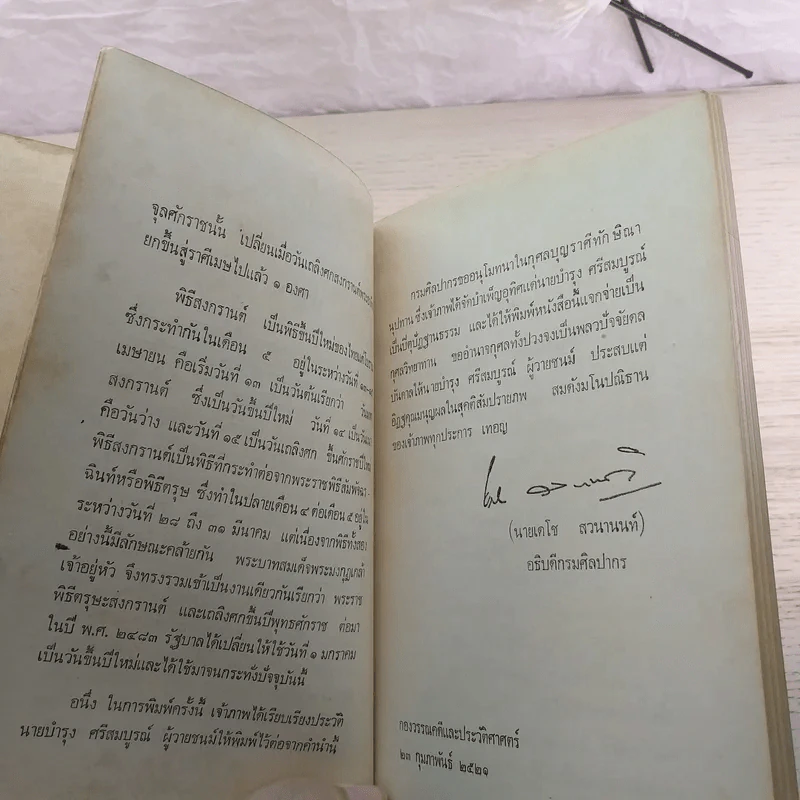 จุลศักราชนั้น เปลี่ยนเมื่อวันเถลิงศกสงกรานต์
ยกขึ้นสู่ราศีเมษไปแล้ว ๑ องศา
พิธีสงกรานต์ เป็นพิธีขึ้นปีใหม่ของไทย
ซึ่งกระทำกันในเดือน ๕ อยู่ในระหว่างวันที่
เมษายน คือเริ่มวันที่ ๑๓ เป็นวันต้นเรียกว่า
สงกรานต์ ซึ่งเป็นวันขึ้นปีใหม่ วันที่ ๑๔ เป็นวัน
คือวันว่าง และวันที่ ๑๕ เป็นวันเถลิงศก ขึ้นศักราชปีใหม่
พิธีสงกรานต์เป็นพิธีที่กระทำต่อจากพระราชพิธีสัมพัจฉร-
ฉินท์หรือพิธีตรุษ ซึ่งทำในปลายเดือน ๔ ต่อเดือน ๕ อยู่ใน
ระหว่างวันที่ ๒๘ ถึง ๓๑ มีนาคม แต่เนื่องจากพิธีทั้งสอง
อย่างนี้มีลักษณะคล้ายกัน พระบาทสมเด็จพระมงกุฎเกล้า
เจ้าอยู่หัว จึงทรงรวมเข้าเป็นงานเดียวกันเรียกว่า พระราช
พิธีตรุษะสงกรานต์ และเถลิงศกขึ้นปีพุทธศักราช ต่อมา
ในปี พ.ศ. ๒๔๘๓ รัฐบาลได้เปลี่ยนให้ใช้วันที่ ๑ มกราคม
เป็นวันขึ้นปีใหม่และได้ใช้มาจนกระทั่งปัจจุบันนี้
อนึ่ง ในการพิมพ์ครั้งนี้ เจ้าภาพได้เรียบเรียงประวัติ
นายบำรุง ศรีสมบูรณ์ ผู้วายชนม์ให้พิมพ์ไว้ต่อจากคำนำนี้
กรมศิลปากรขออนุโมทนาในกุศลบุญราศีทักษิณา
นุปทาน ซึ่งเจ้าภาพได้จัดบำเพ็ญอุทิศแด่นายบำรุง ศรีสมบูรณ์
เป็นปิตุปัฏฐานธรรม และได้ให้พิมพ์หนังสือนี้แจกจ่ายเป็น
กุศลวิทยาทาน ขออำนาจกุศลทั้งปวงจงเป็นพลวปัจจัยดล
บันดาลให้นายบำรุง ศรีสมบูรณ์ ผู้วายชนม์ ประสบแต่
อิฏฐคุณมนุญผลในสุคติสัมปรายภพ สมดังมโนปณิธาน
ของเจ้าภาพทุกประการ เทอญ
(นายเดโช สวนานนท์)
อธิบดีกรมศิลปากร
กองวรรณคดีและประวัติศาสตร์
๒๓ กุมภาพันธ์ ๒๕๒๑